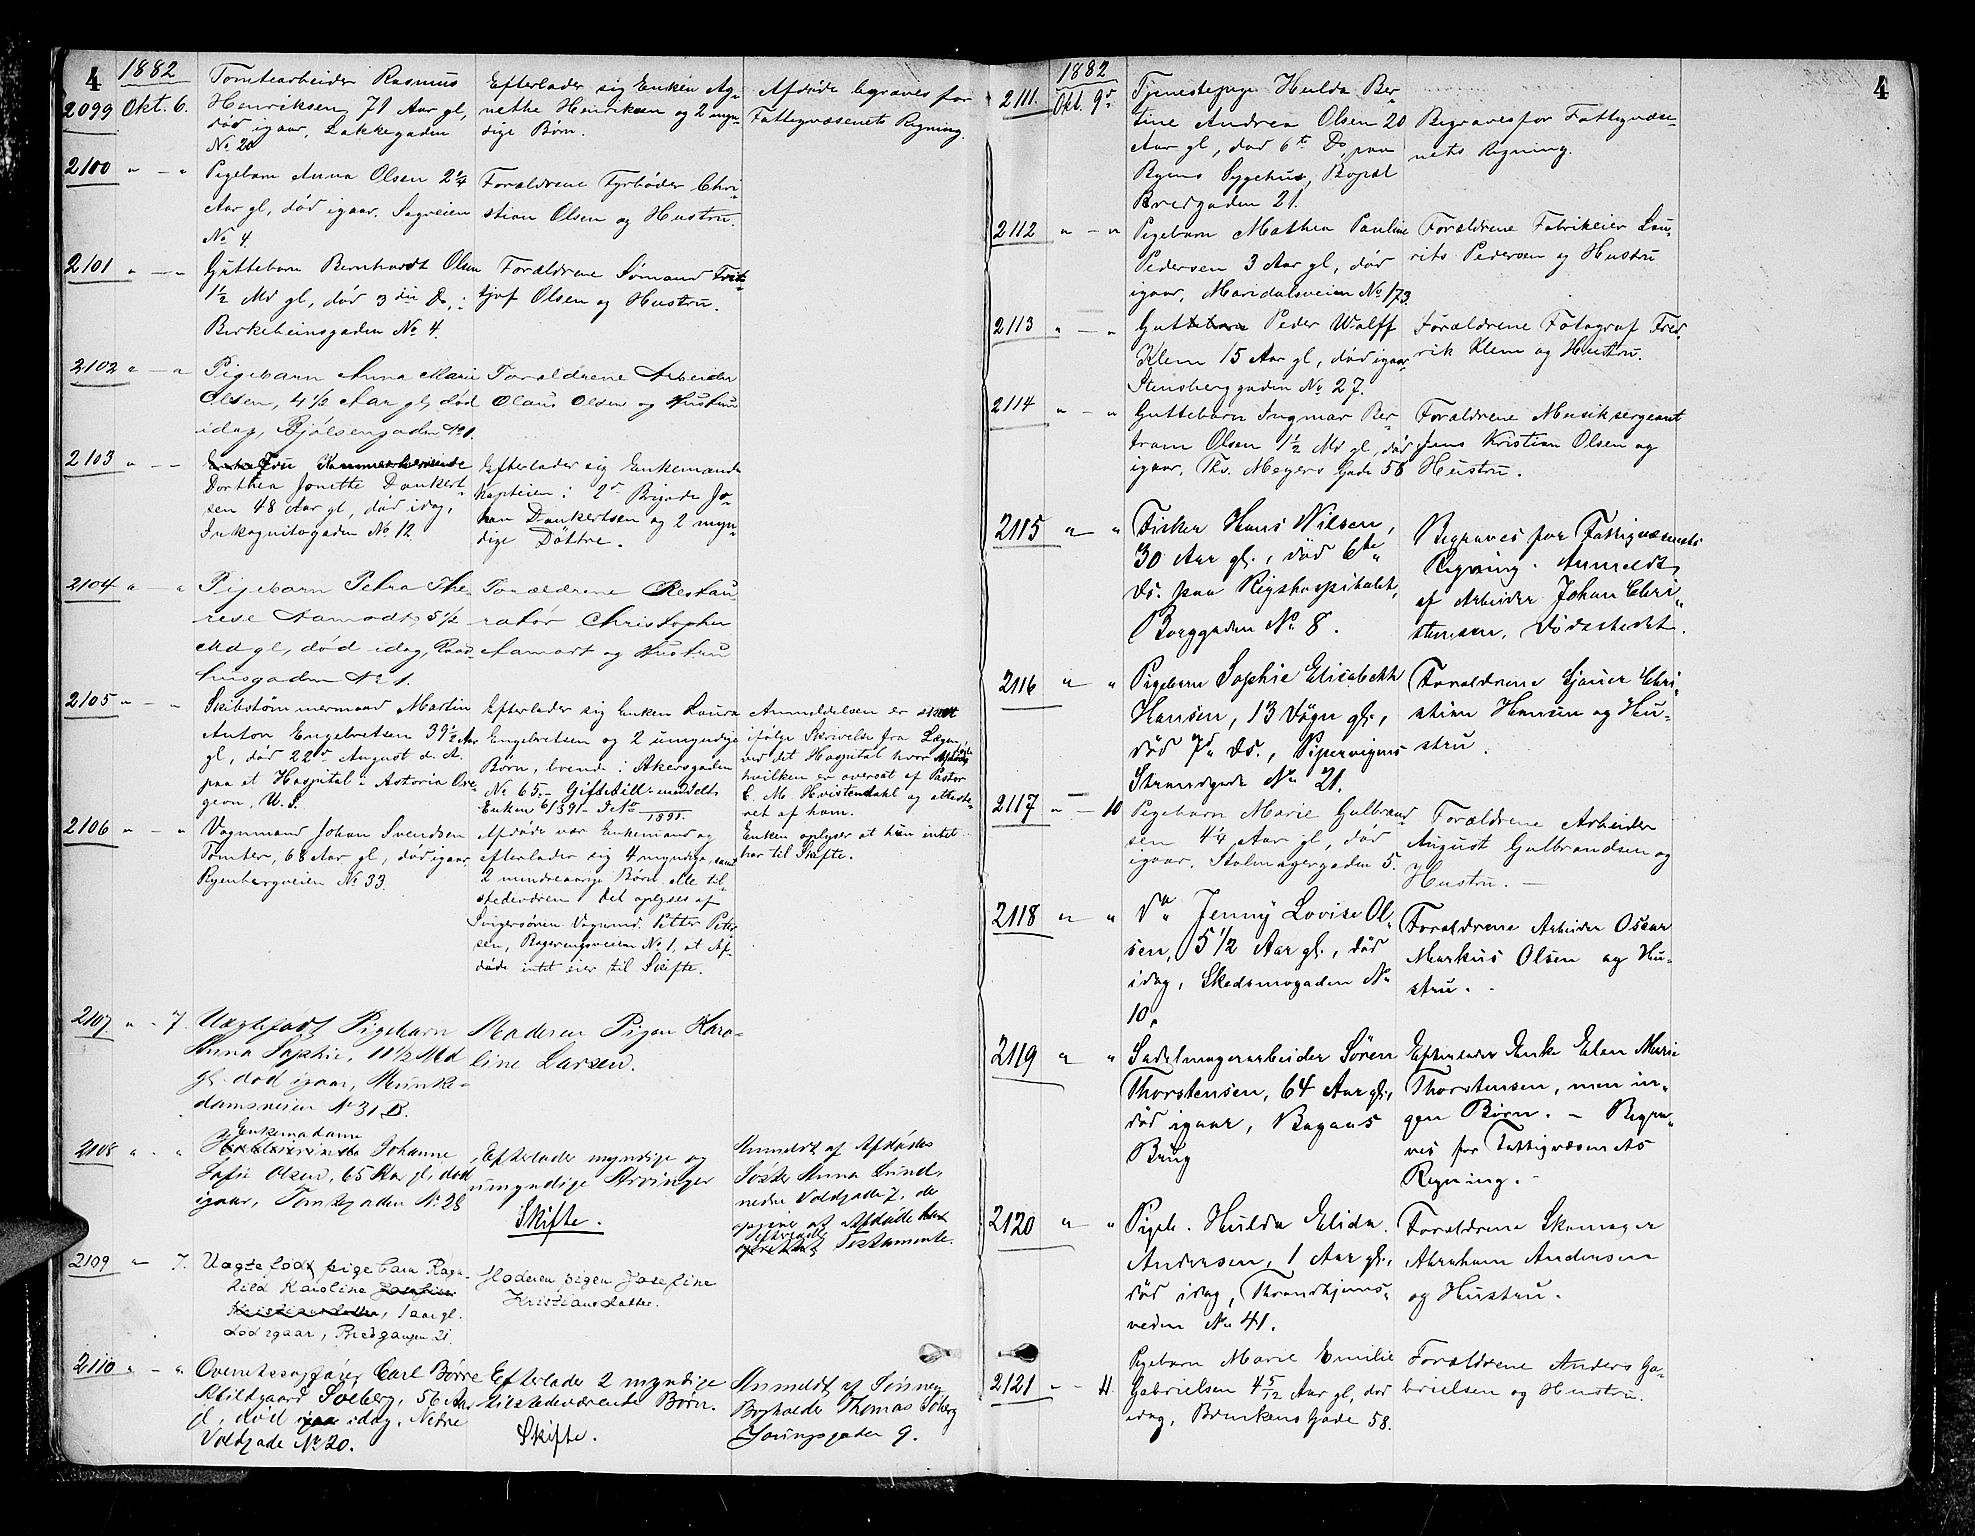 4
1882
2099 Okt. 6.
Tomtearbeider Rasmus
Henriksen, 71 Aar gl,
død igaar, Lakkegaden
No 20
Efterlader sig Enken Ag-
nethe Henriksen og 2 myn-
dige Børn.
Afdøde begraves for
Fattigvæsenets Regning.
2100 " — "
Pigebarn Anna Olsen 2 1/4
Aar gl, død igaar. Sagveien
No 4.
Forældrene Fyrbøder Chri-
stian Olsen og Hustru.
2101 " — "
Guttebarn Bernhardt Olsen
1 1/2 Md gl, død 3die Ds, i
Birkebeinsgaden No 4.
Forældrene Sømand Frit-
tjof Olsen og Hustru.
2102 " — "
Pigebarn Anna Marie
Olsen, 4 1/2 Aar gl, død
idag, Bjølsengaden No 1.
Forældrene Arbeider
Olaus Olsen og Hustru
2103 " — "
Fru
Dorthea Jonette Dankert-
sen 48 Aar gl, død idag,
Inkognitogaden No 12
Efterlader sig Enkemand
Kaptein i 2d Brigade Jo-
han Dankertsen og 2 myn-
dige Døttre.
2104 " — "
Pigebarn Petra The-
rese Aamodt, 5 1/2
Md gl, død idag, Raad-
husgaden No 1.
Forældrene Restau-
ratør Christopher
Aamodt og Hustru
2105 " — "
Skibstømmermand Martin
Anton Engebretsen 39 1/2 Aar
gl, død 22d August d. A.
paa et Hospital i Astoria Ore-
geon, U. S.
Efterlader sig Enken Laura
Engebretsen og 2 umyndige
Børn, boende i Akersgaden
No 65. - Giftebill. meddelt
Enken 6/3 91 -
1891.
Anmeldelsen er skeet
ifølge Skrivelse fra Lægen
ved det Hospital hvor Afdøde
hvilken er oversat af Pastor
C. M. Hvistendahl og atteste-
ret af ham.
2106 " — "
Vognmand Johan Svendsen
Tomter, 68 Aar gl, død igaar,
Ryenbergveien No 33.
Afdøde var Enkemand og
efterlader sig 4 myndige, samt
2 mindreaarige Børn, alle til-
stedeværen. Det oplyses af
Svigersønen Vognmd. Petter Peter-
sen, Ryenbergveien No 1, at Af-
døde intet eier til Skifte.
Enken oplyser at hun intet
har til Skifte.
2107 " - 7.
Uægtefødt Pigebarn
Anna Sophie, 11 1/2 Md
gl. død igaar, Munke-
damsveien No 31 B.
Moderen Pigen Karo-
line Larsen.
2108 " - "
Enkemadame
Johanne
Sofie Olsen, 65 Aar gl, død
igaar, Tomtegaden No 28
Efterlader myndige og
umyndige Arvinger
Skifte.
Anmeldt af Afdødes
Søster Anna Lund,
nedre Voldgade 7, de
opgive at Afdøde har
efterladt Testamente.
2109 " 7.
Uægtefødt pigebarn Ragn-
hild Karoline Josefine
Kristiansdatter, 1 aar gl.
død igaar, Bredgaden 21.
Moderen pigen Josefine
Kristiansdatter.
2110 " — "
Overretssagfører Carl Børre
Mildgaard Solberg, 56 Aar
gl, død igaar idag, Nedre
Voldgade No 20.
Efterlader 2 myndige
tilstedeværende Børn.
Skifte.
Anmeldt af Sønnen
Bogholder Thomas Solberg
Josefinesgaden 9.
4
1882
2111. Okt. 9d
Tjenestepige Hulda Ber-
tine Andrea Olsen 20
Aar gl, død 6te Ds, paa
Byens Sygehus, Bopæl
Bredgaden 21.
Begraves for Fattigvæse-
nets Regning.
2112 " — "
Pigebarn Mathea Pauline
Pedersen 3 Aar gl, død
igaar, Maridalsveien No 173.
Forældrene Fabrikeier Lau-
rits Pedersen og Hustru
2113 " — "
Guttebarn Peder Wolff
Klem 15 Aar gl, død igaar
Stensberggaden No 27.
Forældrene Fotograf Fred-
rik Klem og Hustru.
2114 " — "
Guttebarn Ingmar Ber-
tram Olsen 1 1/2 Md gl, død
igaar, Ths. Meyers Gade 58
Forældrene Musiksergeant
Jens Kristian Olsen og
Hustru.
2115 " — "
Fisker Hans Nilsen,
30 Aar gl., død 6te
Ds. paa Rigshospitalet,
Borggaden No 8.
Begraves for Fattigvæsenets
Regning. Anmeldt
af Arbeider Johan Chri-
stensen, Dødsstedet.
2116 " "
Pigebarn Sophie Elisabeth
Hansen, 13 Døgn gl.,
død 7d. Ds., Pipervigens
Strandgade No 21.
Forældrene Gjører Chri-
stian Hansen og Hu-
stru.
2117 " — 10
Pigebarn Marie Gulbrand-
sen 4 1/4 Aar gl, død
igaar. Stolmagergaden 5.
Forældrene Arbeider
August Gulbrandsen og
Hustru. —
2118 " "
Do Jenny Lovise Ol-
sen, 5 1/2 Aar gl., død
idag, Skedsmogaden No
10.
Forældrene Arbeider Oscar
Markus Olsen og Hu-
stru.
2119 " "
Sadelmagerarbeider Søren
Thorstensen, 64 Aar gl.,
død igaar, Bagaas
Brug
Efterlader Enke Elen Marie
Thorstensen, men in-
gen Børn. — Begra-
ves for Fattigvæsenets
Regning.
2120 " "
Pigeb. Hulda Elida
Andersen, 1 Aar gl.,
død idag, Throndhjems-
veien No 41.
Forældrene Skomager
Abraham Andersen
og Hustru.
2121 " — 11.
Pigebarn Marie Emilie
Gabrielsen 4 5/12 Aar gl, død
idag, Brenkens Gade 58.
Forældrene Anders Ga-
brielsen og Hustru.